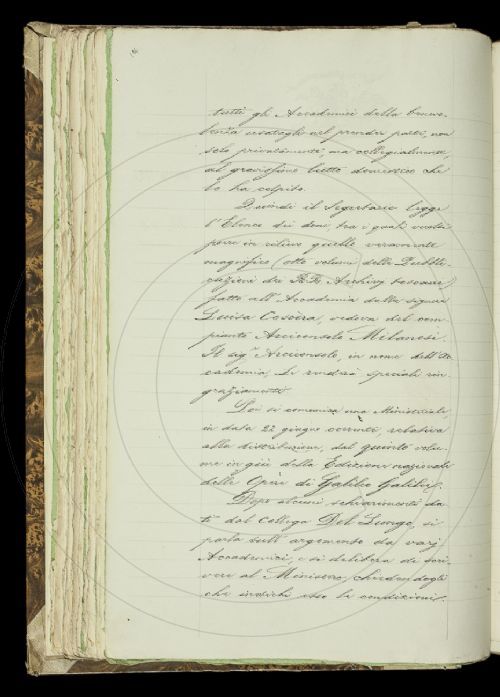 tutti gli Accademici della bene-
lenza usatagli nel prender parte, non
solo privatamente, ma collegialmente,
al gravissimo lutto domestico che
lo ha colpito.
Quindi il Segretario legge
l'Elenco dei doni, tra i quali
porre in rilievo quello veramente
magnifico (otto volumi delle Pubbli-
cazioni dei RR. Archivj toscani)
fatto all'Accademia dalla signora
Luisa vedova del com-
pianto Arciconsolo Milanesi.
Il sig.r Arciconsolo, in nome dell'Ac-
cademia, le renderà speciali rin-
graziamenti.
Poi si comunica una Ministeriale
in data 22 giugno corrente relativa
alla distribuzione, dal quinto volu-
me in giù della Edizione nazionale
delle Opere di Galileo Galilei.
Dopo alcuni schiarimenti da-
ti dal Collega Del Lungo, si
parla sull'argomento da varj
Accademici, e si delibera di scri-
vere al Ministero, chiedendogli
che indichi esso le condizioni